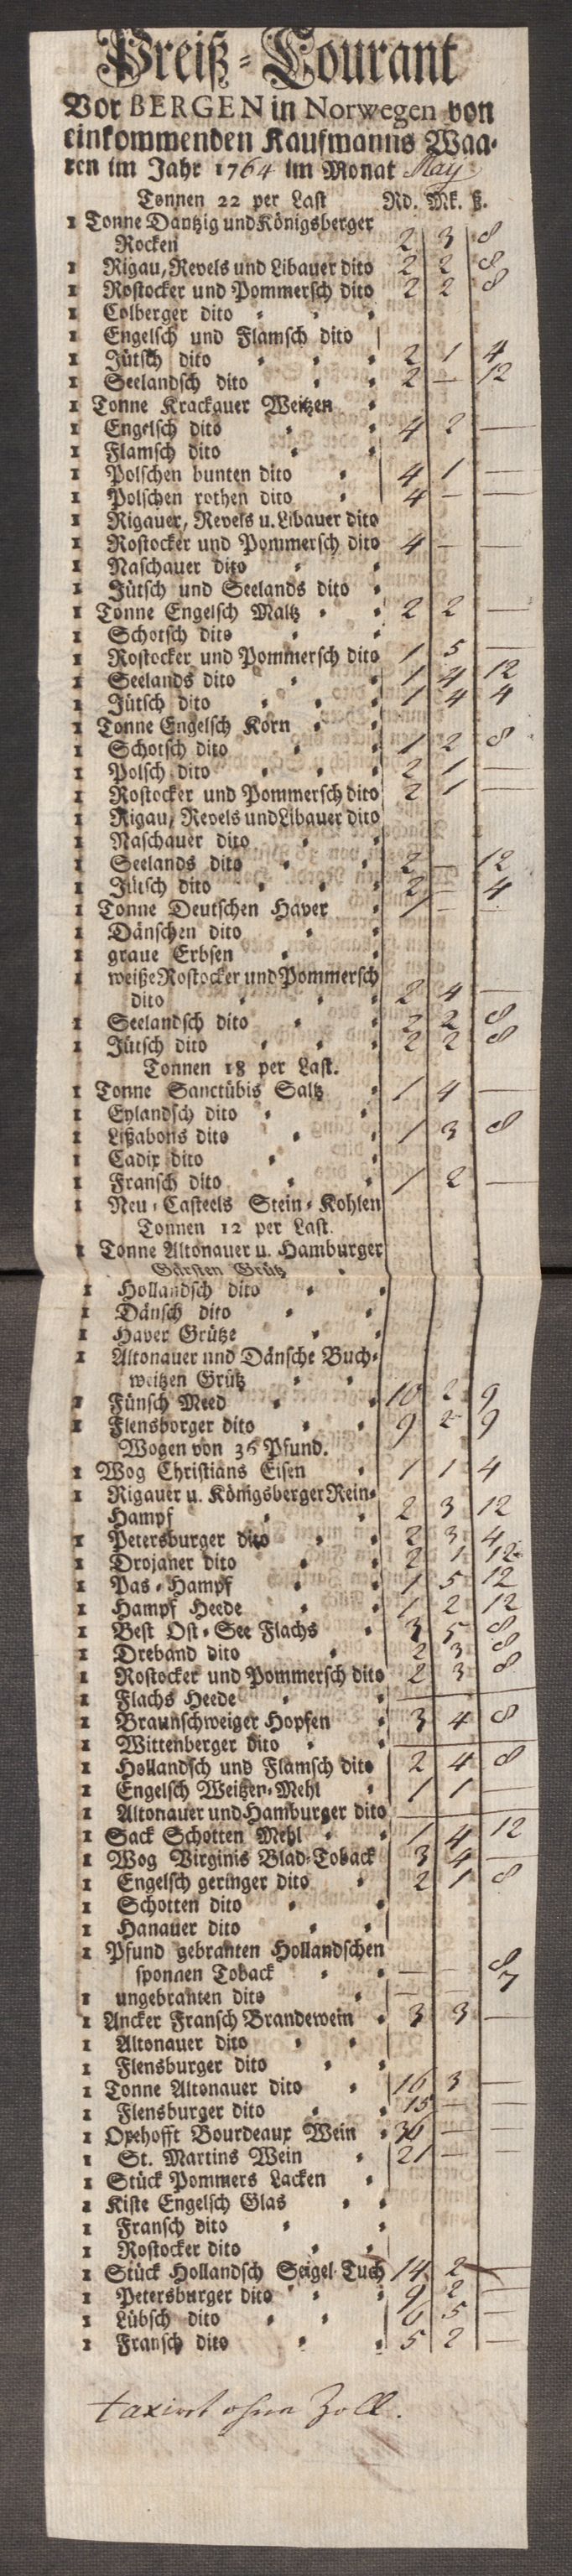 Preiß-Courant
Vor BERGEN in Norwegen von
einkommenden Kaufmanns Waa-
ren im Jahr 1764 im Monat May
Tonnen 22 per Last Rd. Mk. ß.
1 Tonne Dantzig und Königsberger
Rocken 2 3 8
1 Rigau, Revels und Libauer dito 2 2 8
1 Rostocker und Pommersch dito 2 2 8
1 Colberger dito
1 Engelsch und Flamsch dito
1 Jütsch dito 2 1 4
1 Seelandsch dito 2 — 12
1 Tonne Krackauer Weitzen
1 Engelsch dito 4 2 —
1 Flamsch dito
1 Polschen bunten dito 4 1 —
1 Polschen rothen dito 4 — —
1 Rigauer, Revels u. Libauer dito
1 Rostocker und Pommersch dito 4 — —
1 Naschauer dito
1 Jütsch und Seelands dito
1 Tonne Engelsch Maltz 2 2 —
1 Schotsch dito
1 Rostocker und Pommersch dito 1 5 —
1 Seelands dito 1 4 12
1 Jütsch dito 1 4 4
1 Tonne Engelsch Korn
1 Schotsch dito 1 2 8
1 Polsch dito 2 1 —
1 Rostocker und Pommersch dito 2 1 —
1 Rigau, Revels und Libauer dito
1 Naschauer dito
1 Seelands dito 2 — 12
1 Jütsch dito 2 — 4
1 Tonne Deutschen Haver 1 — —
1 Dänschen dito
1 graue Erbsen
1 weiße Rostocker und Pommersch
dito 2 4 —
1 Seelandsch dito 2 2 8
1 Jütsch dito 2 2 8
Tonnen 18 per Last.
1 Tonne Sanctübis Saltz 1 4 —
1 Eylandsch dito
1 Lißabons dito 1 3 8
1 Cadix dito
1 Fransch dito 1 2 —
1 Neu-Casteels Stein-Kohlen
Tonnen 12 per Last.
1 Tonne Altonauer u. Hamburger
Gärsten Grütz
1 Hollandsch dito
1 Dänsch dito
1 Haver Grütze
1 Altonauer und Dänsche Buch-
weitzen Grütz
1 Fünsch Meed 10 2 9
1 Flensborger dito 9 2 9
Wogen von 36 Pfund.
1 Wog Christians Eisen 1 1 4
1 Rigauer u. Königsberger Rein-
Hampf 2 3 12
1 Petersburger dito 2 3 4
1 Drojaner dito 2 1 12
1 Pas-Hampf 1 5 12
1 Hampf Heede 1 2 12
1 Best Ost-See Flachs 3 5 8
1 Dreband dito 2 3 8
1 Rostocker und Pommersch dito 2 3 8
1 Flachs Heede —
1 Braunschweiger Hopfen 3 4 8
1 Wittenberger dito —
1 Hollandsch und Flamsch dito 2 4 8
1 Engelsch Weitzen-Mehl 1 1 —
1 Altonauer und Hamburger dito —
1 Sack Schotten Mehl 1 4 12
1 Wog Virginis Blad-Toback 3 4 —
1 Engelsch geringer dito 2 1 8
1 Schotten dito
1 Hanauer dito
1 Pfund gebranten Hollandschen
sponnen Toback — — 8
1 ungebranten dito — — 7
1 Ancker Fransch Brandewein 3 3 —
1 Altonauer dito
1 Flensburger dito
1 Tonne Altonauer dito 16 3 —
1 Flensburger dito 15 — —
1 Oxehofft Bourdeaux Wein 36 — —
1 St. Martins Wein 21 — —
1 Stück Pommers Lacken
1 Kiste Engelsch Glas
1 Fransch dito
1 Rostocker dito
1 Stück Hollandsch Seigel Tuch 14 2 —
1 Petersburger dito 9 2 —
1 Lübsch dito 6 5 —
1 Fransch dito 5 2 —
taxirt ohne Zoll.